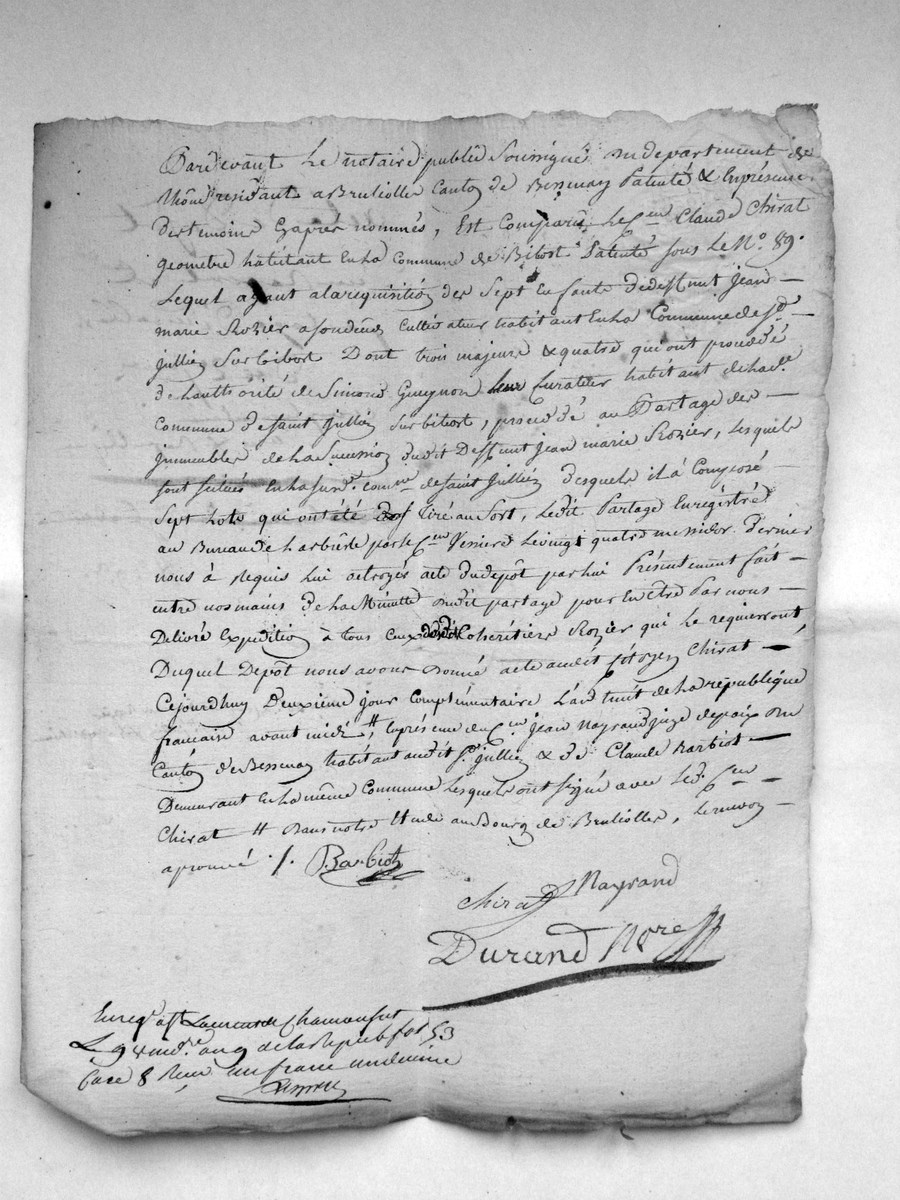 Pardevant Le notaire public Soussigné au departement du
Rhône residant a Brulliolle Canton de Bessenay Patenté & En présence
des temoins Cy aprés nommés, Est Comparû Le Cen Claude Chirat
geometre habitant En La Commune de Bibost Patenté sous Le No. 89.
Lequel ayant a la requisition des Sept Enfants de deffunt Jean
marie Rozier Cultivateur habitant En La Commune de St
jullien Sur bibost Dont trois majeurs & quatre qui ont procédé
de L'authorité de Simond Gueynon leur Curateur habitant de La de
Commune de Saint jullien Sur bibost, procédé au Partage des
immeubles de La Succession dudit Deffunt Jean marie Rozier, Lesquels
sont situés En La susd. comne. de Saint Jullien desquels il à Composé
Sept Lots qui ont été tiré au Sort, Ledit Partage Enregistré
au Bureau de Larbrêle par le Cen Le vingt quatre messidor dernier
nous à Requis Lui octroyer acte du depôt par lui Présentement fait
entre nos mains de La Minutte dudit partage pour En Etre Par nous
Délivré Expedition à tous Ceux desdits Cohéritiers Rozier qui Le requierront
Duquel Depôt nous avons Donné acte audit Citoyen Chirat
Cejourdhuy Deuxieme jour Complémentaire L'an huit de La republique
francaise avant midi, En présence du Cen. Jean Nayrand juge de paix du
Canton de Bessenay habitant audit St. jullien & de Claude Barbiot
Demeurant En La même Commune Lesquels ont signé avec Led. Cen
Chirat Dans notre Etude au Bourg de Brulliolle, Le renvoy
aprouvé ./. Barbiot
Chirat Nayrand
Durand Nre
Enregé a St Laurent de Chamousset
Le 9 vendre. an 9 de la Repub fol 53
Case 8 Reçu un franc un decime